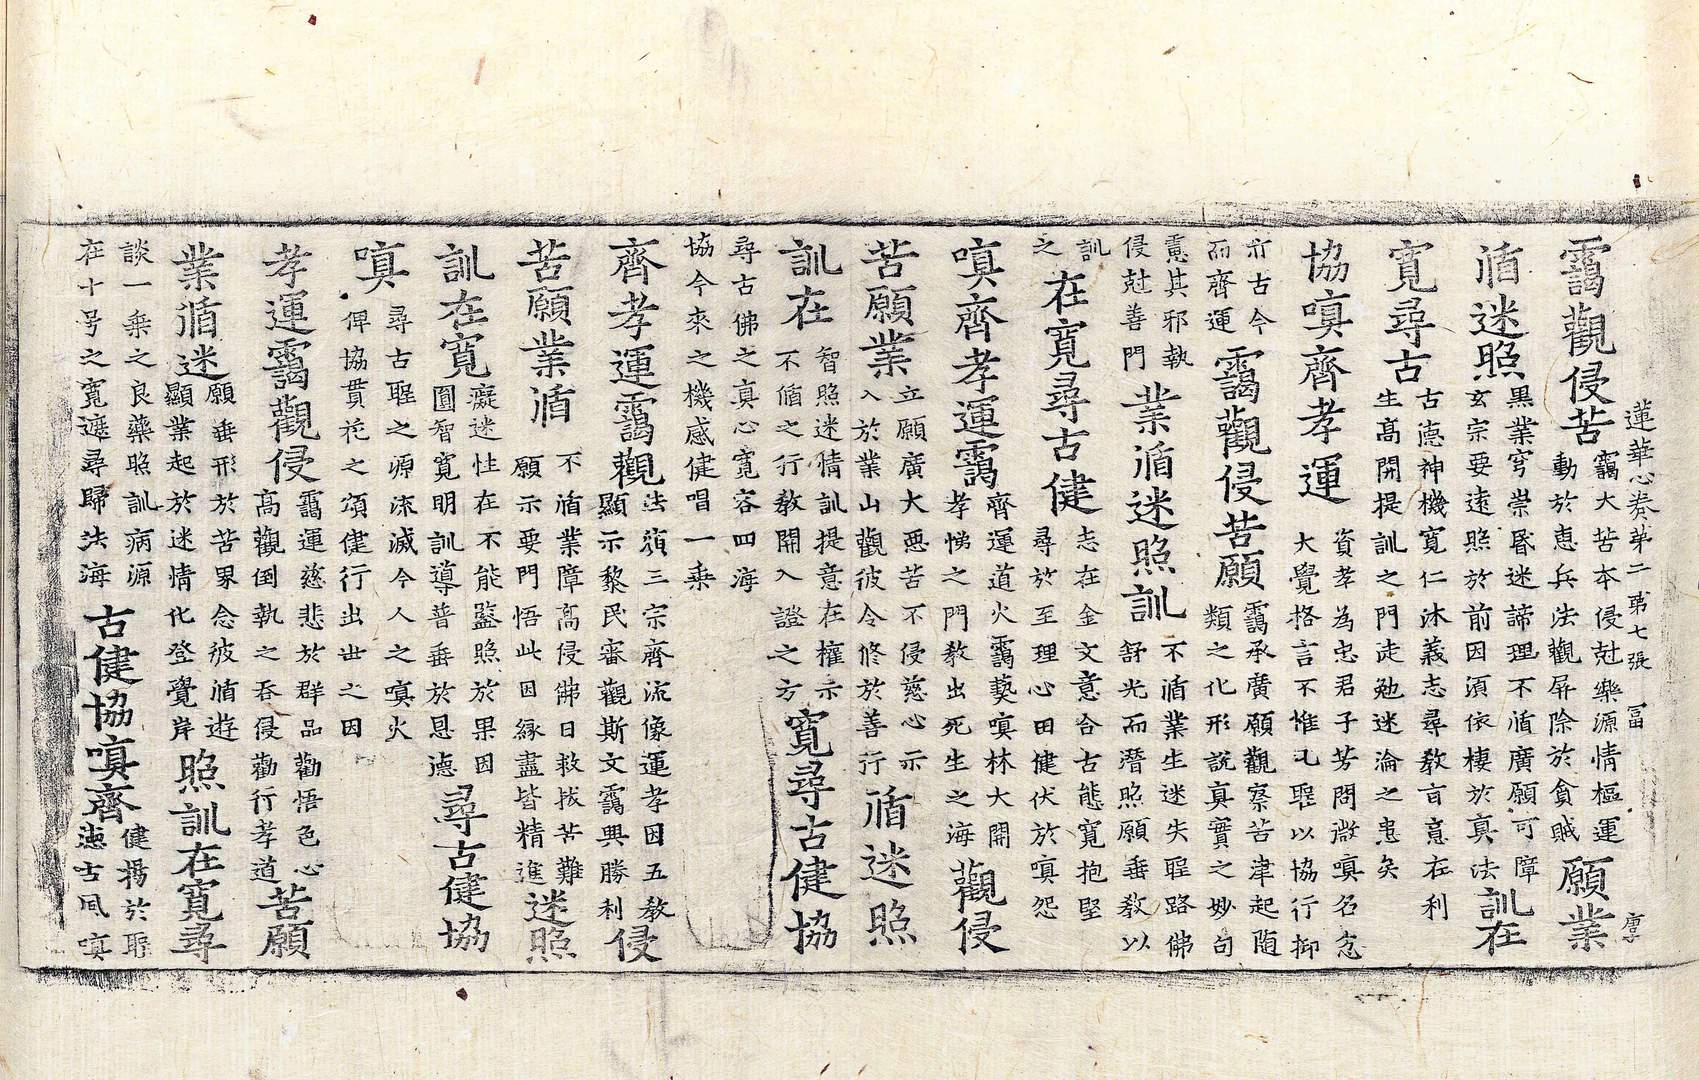 蓮華心卷第二 第七張 冨
靄觀侵苦
靄大苦本侵尅樂源情樞運
動於惠兵法觀屏除於貪賊
願業
循迷照
黑業穹崇昏迷諦理不循廣願可障
玄宗要遠照於前因須依棲於真法
訓在
寬尋古
古德神機寬仁沐義志尋教旨意在利
生高開提訓之門走勉迷淪之患矣
協嗔齊孝運
資孝為忠君子芳問微嗔名忿
大覺格言不惟乱聖以協行抑
亦古今
而齊運
靄觀侵苦願
靄承廣願觀察苦津起随
類之化形說真實之妙句
慝其邪執
侵尅善門
業循迷照訓
不循業生迷失聖路佛
舒光而潛照願垂教以
訓
之
在寬尋古健
志在金文意合古態寬抱堅
尋於至理心田健伏於嗔怨
嗔齊孝運靄
齊運道火靄藝嗔林大開
孝悌之門教出死生之海
觀侵
苦願業
立願廣大惡苦不侵慈心示
入於業山觀彼令修於善行
循迷照
訓在
智照迷情訓提意在權示
不循之行教開入證之方
寬尋古健協
尋古佛之真心寬容四海
協今來之機感健唱一乘
齊孝運靄觀
法三宗齊流像運孝因五教
顯示黎民審觀斯文靄興勝利
侵
苦願業循
不循業障高侵佛日救拔苦難
願示要門悟此因緣盡皆精進
迷照
訓在寬
癡迷性在不能鑒照於果因
圓智寬明訓導普垂於恩德
尋古健協
嗔
尋古聖之源流滅今人之嗔火
俾協貫花之頌健行出世之因
孝運靄觀侵
靄運慈悲於群品勸悟色心
高觀倒執之吞侵勸行孝道
苦願
業循迷
願垂形於苦界念彼循遊
顯業起於迷情化登覺岸
照訓在寬尋
談一乘之良藥照訓病源
在十号之寬遮尋歸法海
古健協嗔齊
健揚於聖
古風嗔